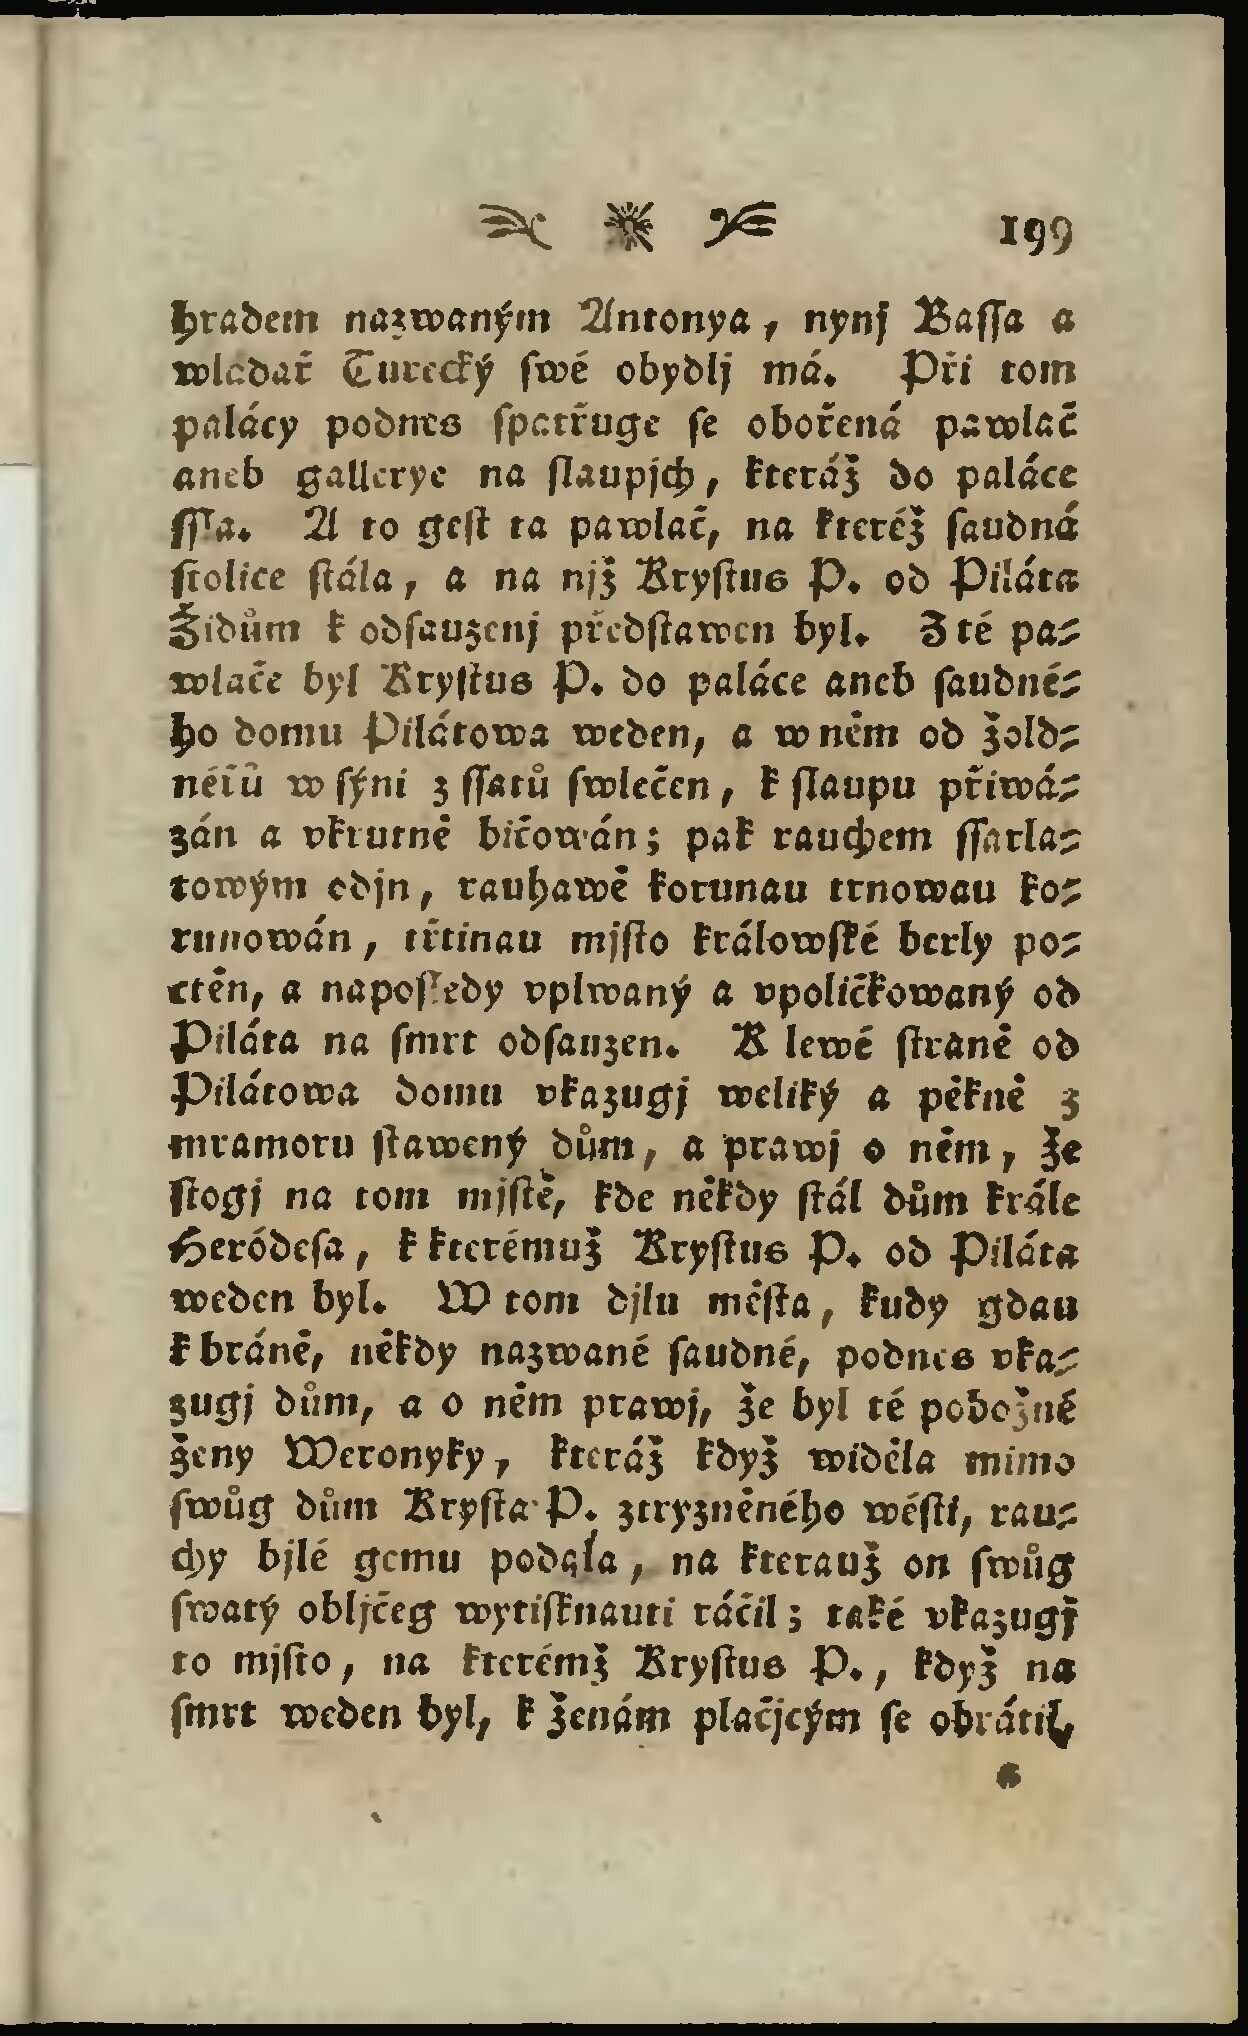 199
hradem nazwaným Antonya, nynj Baſſa a
wladař Turecký ſwé obydlj má. Při tom
palácy podnes ſpatřuge ſe obořená pawlač
aneb gallerye na ſlaupjch, kteráž do paláce
ſſla. A to geſt ta pawlač, na kteréž ſaudná
ſtolice ſtála, a na njž Kryſtus P. od Piláta
Židům k odſauzenj předſtawen byl. Z té pa-
wlače byl Kryſtus P. do paláce aneb ſaudné-
ho domu Pilátowa weden, a w něm od žold-
néřů w ſýni z ſſatů ſwlečen, k ſlaupu přiwá-
zán a vkrutně bičowán; pak rauchem ſſarla-
towým odjn, rauhawě korunau trnowau ko-
runowán, třtinau mjſto králowſké berly po-
ctěn, a napoſledy vplwaný a vpoličkowaný od
Piláta na ſmrt odſauzen. K lewé ſtraně od
Pilátowa domu vkazugj weliký a pěkně z
mramoru ſtawený dům, a prawj o něm, že
ſtogj na tom mjſtě, kde někdy ſtál dům krále
Heródeſa, k kterémuž Kryſtus P. od Piláta
weden byl. W tom djlu měſta, kudy gdau
k bráně, někdy nazwané ſaudné, podnes vka-
zugj dům, a o něm prawj, že byl té pobožné
ženy Weronyky, kteráž když widěla mimo
ſwůg dům Kryſta P. ztryzněného wéſti, rau-
chy bjlé gemu podala, na kterauž on ſwůg
ſwatý obljčeg wytiſknauti ráčil; také vkazugj
to mjſto, na kterémž Kryſtus P., když na
ſmrt weden byl, k ženám plačjcým ſe obrátil,